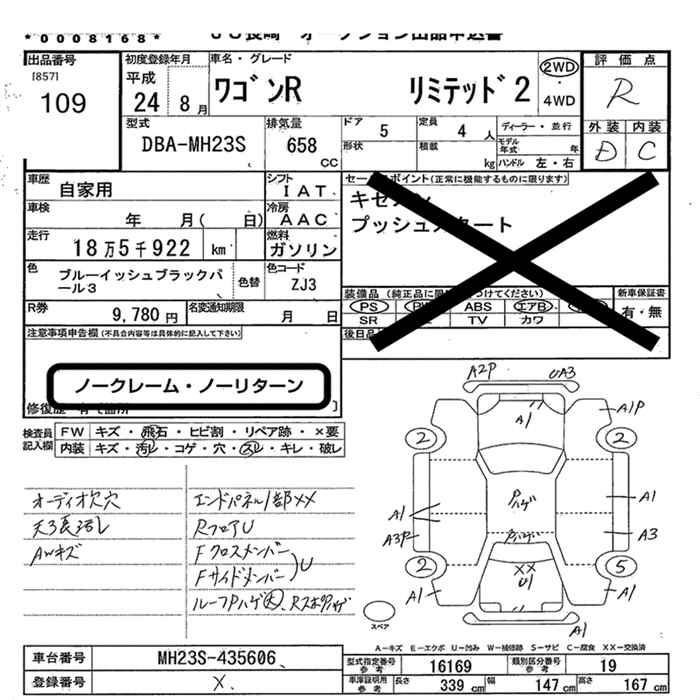 *0008168*
出品番号
[857]
109
初度登録年月
平成
24 8月
車名・グレード
ワゴンR リミテッド2
2WD
・
4WD
評価点
R
型式
DBA-MH23S
排気量
658
CC
ドア 5
形状
定員 4人
積載 kg
ディーラー・並行
モデル年式 年
ハンドル 左・右
外装 内装
D C
車歴 自家用
シフト IAT
車検 年 月( 日)
冷房 AAC
走行 18万5千922 km
燃料 ガソリン
色 ブルーイッシュブラックパール3
色替
色コード ZJ3
R券 9,780円
名変通知期限 月 日
セールスポイント(正常に機能するものに限ります)
プッシュスタート
装備品
PS ABS エアB
SR TV カワ
新車保証書
有・無
後日品
注意事項申告欄(不具合内容等は具体的に記入して下さい)
ノークレーム・ノーリターン
検査員記入欄
FW キズ・飛石・ヒビ割・リペア跡・×要
内装 キズ・汚レ・コゲ・穴・スレ・キレ・破レ
オーディオ欠穴
天3長汚レ
AWキズ
エンドパネル1部XX
RフロアU
Fクロスメンバー
Fサイドメンバー)U
ルーフPハゲ大、
A2P UA3
A1 A1P
2 2
Pハゲ
A1 A1
A3P A3
Pハゲ
2 5
XX
U1
A1 A1
A1
スペア
A-キズ E-エクボ U-凹み W-補修跡 S-サビ C-腐食 XX-交換済
車台番号 MH23S-435606
登録番号 X.
型式指定番号参考 16169
類別区分番号参考 19
車庫証明用参考
長さ 339cm 幅 147cm 高さ 167cm